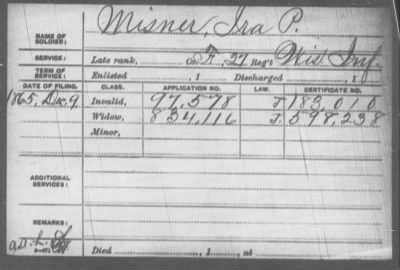 NAME OF SOLDIER: Misner, Ira P.
SERVICE: Late rank, Co. F, 27 Reg't Wis. Inf.
TERM OF SERVICE: Enlisted , 1 Discharged , 1
DATE OF FILING. CLASS. APPLICATION NO. LAW. CERTIFICATE NO.
1865, Dec. 9. Invalid, 97,578 J. 183,010
Widow, 834,116 J. 598,238
Minor,
ADDITIONAL SERVICES:
REMARKS:
Died , 1 , at